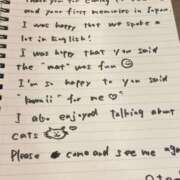 Thank you for coming to see
and your first memories in Japan
I was happy that we spoke a
lot in English!
I was happy that you said
the "mat" was fun
I'm so happy to you said
"kawaii" for me ♡
I also enjoyed talking about
cats
Please come and see me again